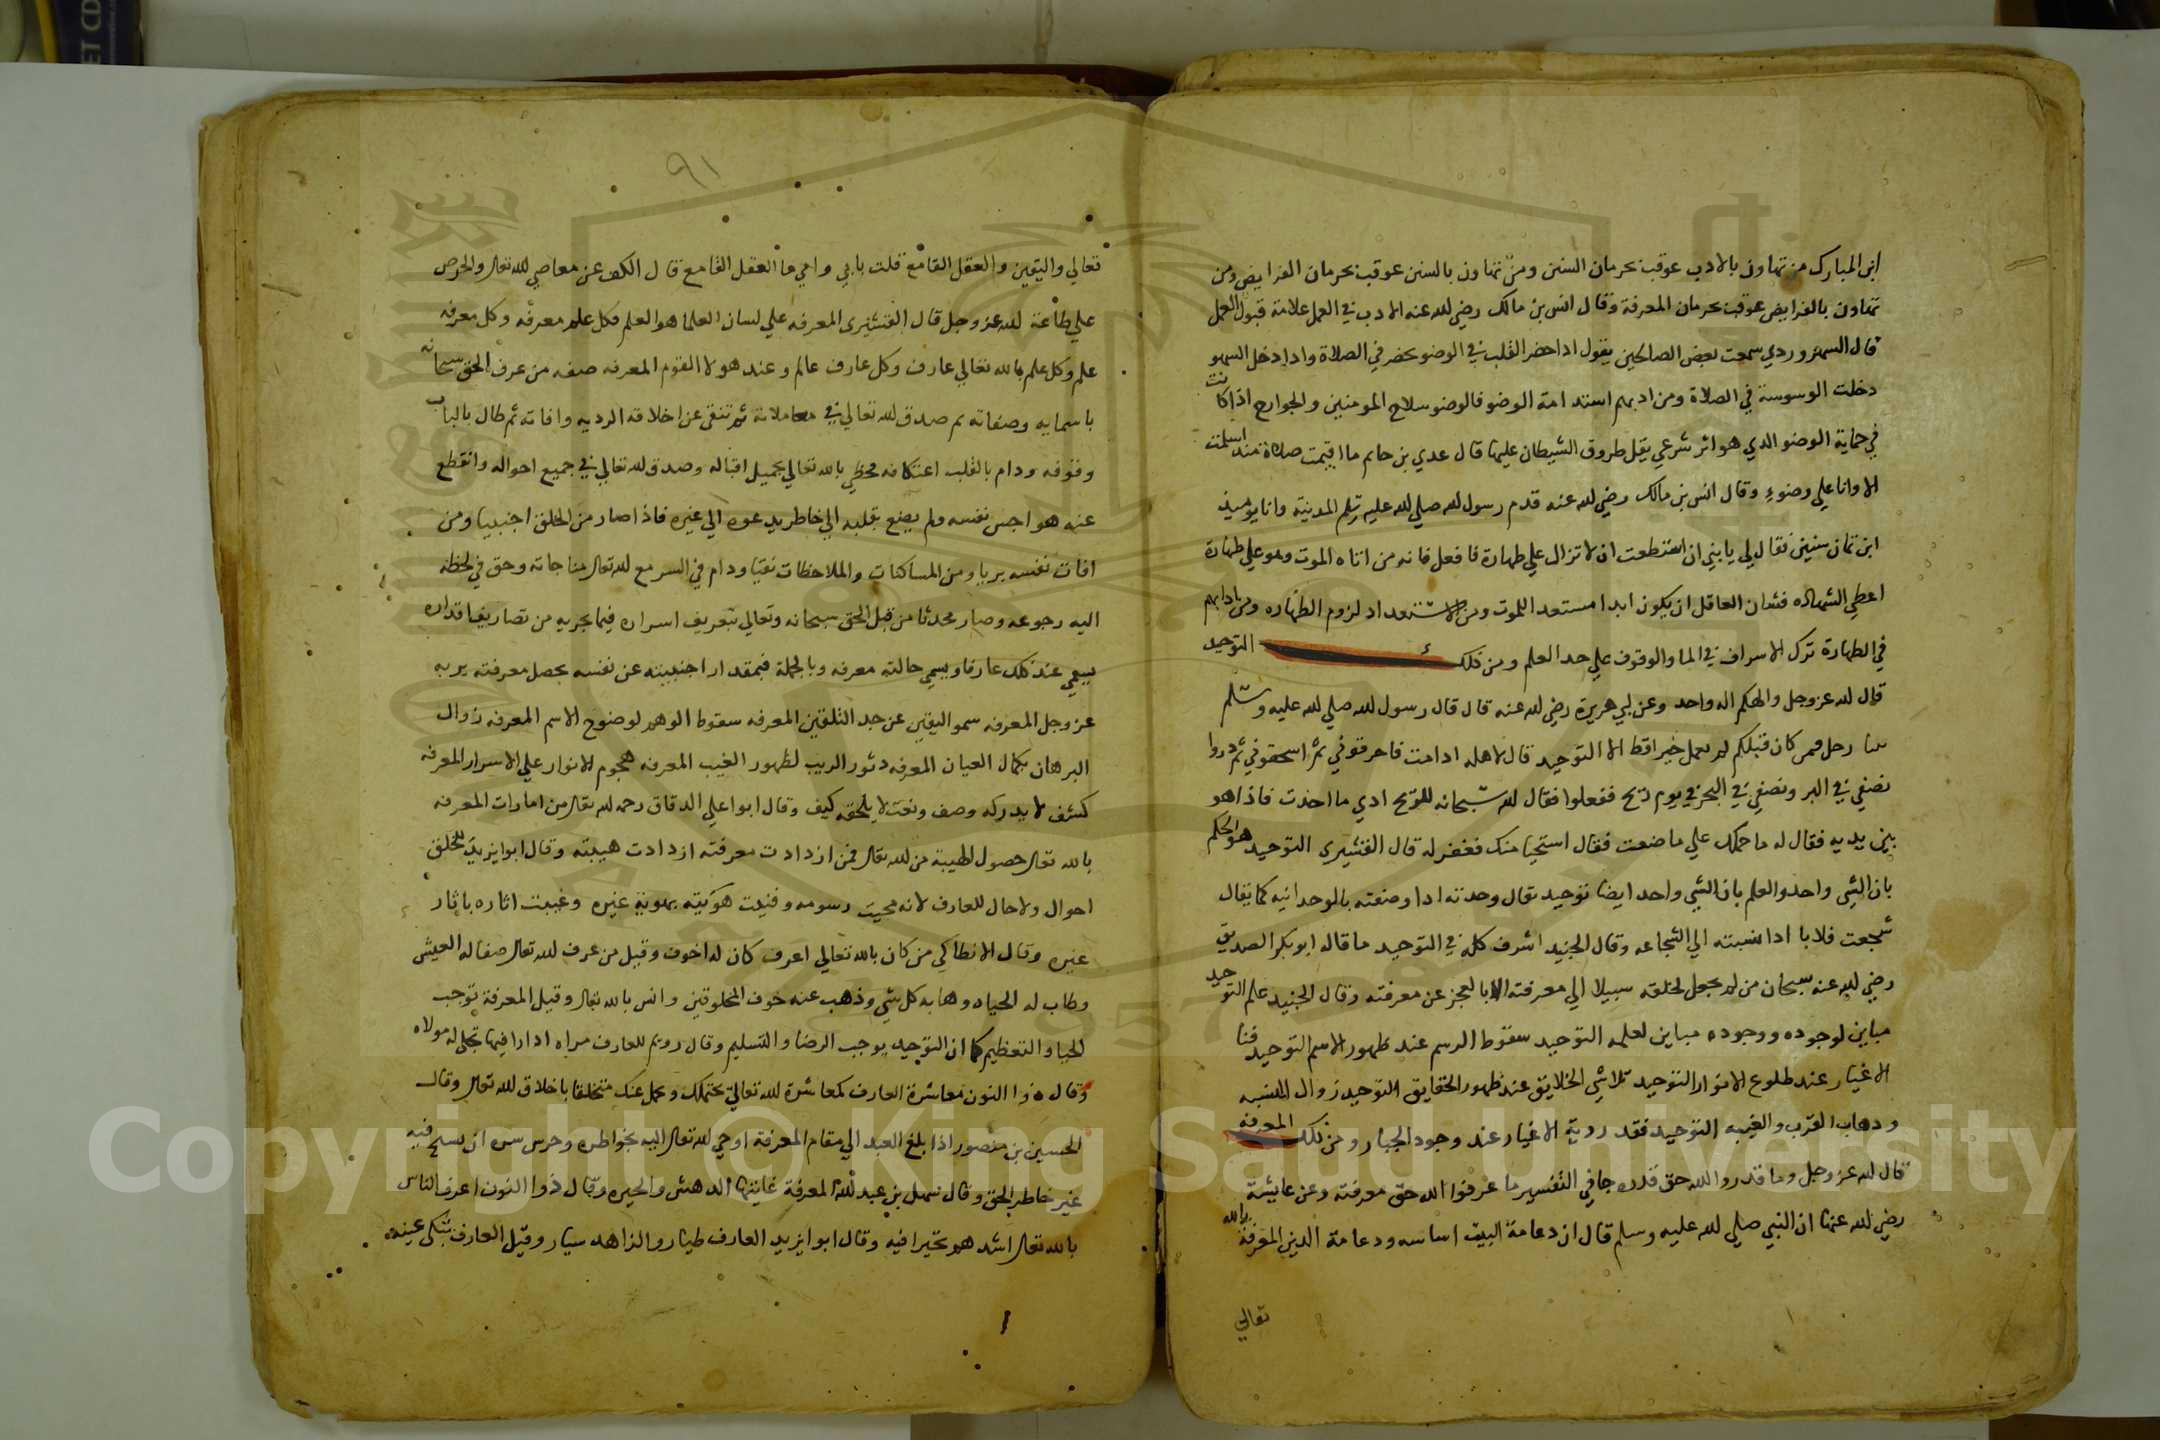 ابن المبارك من تهاون بالادب عوقب بحرمان السنن ومن تهاون بالسنن عوقب بحرمان الفرايض ومن
تهاون بالفرايض عوقب بحرمان المعرفة وقال انس بن مالك رضي لله عنه الادب في العمل علامة قبول العمل
قال السهروردي سمعت بعض الصالحين يقول اذا حضر القلب في الوضو يحضر في الصلاة واذا دخل السهو
دخلت الوسوسة في الصلاة ومن ادبهم استدامة الوضو فالوضو سلاح المومنين والجوارح اذا كانت
في حماية الوضو الذي هو اثر شرعي يقل طروق الشيطان عليها قال عدي بن حاتم ما اقيمت صلاة منذ اسلمت
الا وانا علي وضوء وقال انس بن مالك رضي لله عنه قدم رسول لله صلي لله عليه وسلم المدينة وانا يوميذ
ابن ثمان سنين فقال لي يا بني ان استطعت ان لا تزال علي طهارة فافعل فانه من اتاه الموت وهو علي طهارة
اعطي الشهاده فشان العاقل ان يكون ابدا مستعد اللموت ومن الاستعداد لزوم الطهاره ومن ادابهم
في الطهارة ترك الاسراف في الما والوقوف علي حد العلم ومن ذلك التوحيد
قال لله عز وجل والهكم اله واحد وعن ابي هريرة رضي لله عنه قال قال رسول لله صلي لله عليه وسلم
بينا رجل فمن كان قبلكم لم يعمل خيرا قط الا التوحيد قال لاهله اذا مت فاحرقوني ثم اسحقوني ثم ذروا
نصفي في البر ونصفي في البحر في يوم ريح ففعلوا فقال لله سبحانه للريح ادي ما اخذت فاذا هو
بين يديه فقال له ما حملك علي ما صنعت فقال استحيا منك فغفر له قال القشيري التوحيد هو الحكم
بان الشي واحد والعلم بان الشي واحد ايضا توحيد يقال وحدته اذا وصفته بالوحدانيه كما يقال
شجعت فلانا اذا نسبته الي الشجاعه وقال الجنيد اشرف كلمة في التوحيد ما قاله ابو بكر الصديق
رضي لله عنه سبحان من لم يجعل لخلقه سبيلا الي معرفته الا بالعجز عن معرفته وقال الجنيد علم التوحيد
مباين لوجوده ووجوده مباين لعلمه التوحيد سقوط الرسم عند ظهور الاسم التوحيد فنا
الاغيار عند طلوع الانوار التوحيد تلاشي الخلايق عند ظهور الحقايق التوحيد زوال النسبه
وذهاب القرب والغيبه التوحيد فقد روية الاغيار عند وجود الجبار ومن ذلك المعرفه
قال لله عز وجل وما قدروا الله حق قدره جا في التفسير ما عرفوا الله حق معرفته وعن عايشة
رضي لله عنها ان النبي صلي لله عليه وسلم قال ان دعامة البيت اساسه ودعامة الدين المعرفة بالله
تعالي
٩١
تعالي واليقين والعقل القامع قلت بابي وامي ما العقل القامع قال الكف عن معاصي لله تعالي والحرص
علي طاعة لله عز وجل قال القشيري المعرفه علي لسان العلما هو العلم فكل علم معرفه وكل معرفه
علم وكل علم بالله تعالي عارف وكل عارف عالم وعند هولا القوم المعرفه صفه من عرف الحق سبحانه
باسمايه وصفاته ثم صدق لله تعالي في معاملاته ثم تنقي عن اخلاقه الرديه وافاته ثم طال بالباب
وقوفه ودام بالقلب اعتكافه فحظي بالله تعالي بجميل اقباله وصدق لله تعالي في جميع احواله وانقطع
عنه هواجس نفسه ولم يصغ بقلبه الي خاطر يدعوه الي غيره فاذا صار من الخلق اجنبيا ومن
افات نفسه بريا ومن المساكنات والملاحظات نقيا ودام في السر مع لله تعالي مناجاته وحق في لحظه
اليه رجوعه وصار محدثا من قبل الحق سبحانه وتعالي بتعريف اسراره فيما يجريه من تصاريف اقداره
يسمي عند ذلك عارفا ويسمي حالته معرفه وبالجملة فبمقدار اجنبيته عن نفسه يحصل معرفته بربه
عز وجل المعرفه سمو اليقين عن حد التلقين المعرفه سقوط الوهم لوضوح الاسم المعرفه زوال
البرهان بكمال العيان المعرفه دثور الريب لظهور الغيب المعرفه هجوم الانوار علي الاسرار المعرفه
كشف لا يدركه وصف ونعت لا يلحقه كيف وقال ابوا علي الدقاق رحمه لله تعالي من امارات المعرفه
بالله تعالي حصول الهيبة من لله تعالي فمن ازدادت معرفته ازدادت هيبته وقال ابوا يزيد للخلق
احوال ولا حال للعارف لانه محيت رسومه وفنيت هويته بهوية غيره وغيبت اثاره باثار
غيره وقال الانطاكي من كان بالله تعالي اعرف كان له اخوف وقيل من عرف لله تعالي صفا له العيش
وطاب له الحياه وهابه كل شي وذهب عنه خوف المخلوقين وانس بالله تعالي وقيل المعرفة توجب
الحيا والتعظيم كما ان التوحيد يوجب الرضا والتسليم وقال رويم للعارف مراه اذا را فيها تجلي له مولاه
وقال ذوا النون معاشرة العارف كمعاشرة لله تعالي يحتملك ويحمل عنك متخلقا باخلاق لله تعالي وقال
الحسين بن منصور اذا بلغ العبد الي مقام المعرفة اوحي لله تعالي اليه بخواطره وحرس سره ان يسنح فيه
غير خاطر الحق وقال سهل بن عبد لله المعرفة غايتها الدهش والحيره وقال ذوا النون اعرف الناس
بالله تعالي اشدهم تحيرا فيه وقال ابوا يزيد العارف طيار والزاهد سيار وقيل العارف تبكي عينه
Copyright © King Saud University
1957
ET CD